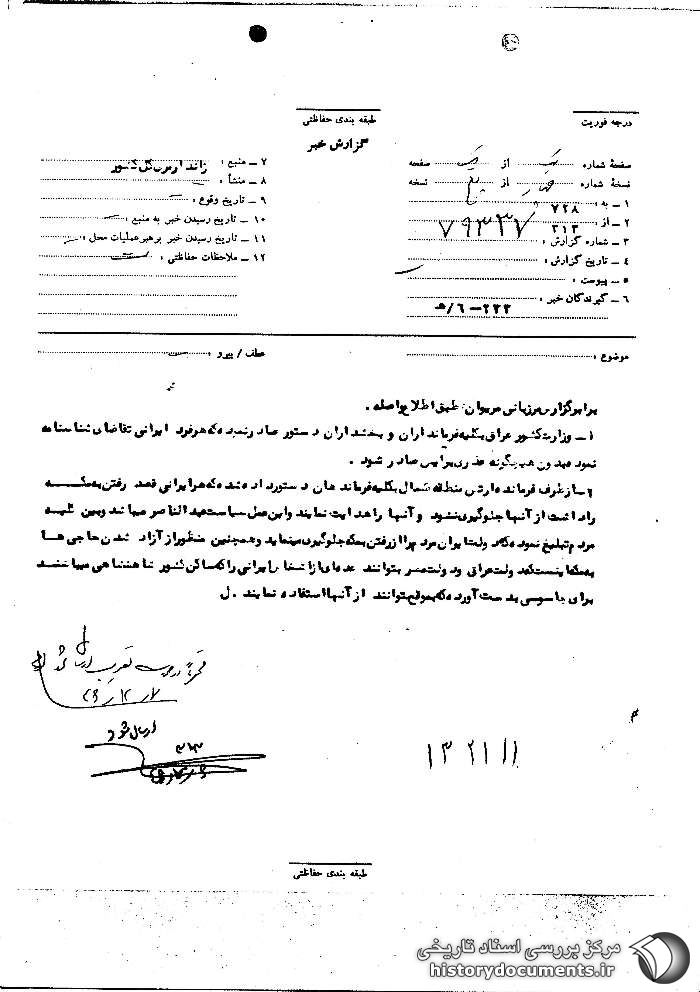 طبقه بندی حفاظتی
گزارش خبر
درجه فوریت
صفحهٔ شماره از صفحه
نسخهٔ شماره از نسخه
۱ – به : ۷۲۸
۲ – از : ۳۱۳
۳ – شماره گزارش : ۷۹۳۳۷
۴ – تاریخ گزارش :
۵ – پیوست :
۶ – گیرندگان خبر :
۲۳۳ – ۶/هـ
۷ – منبع : ژاندارمری کل کشور
۸ – منشأ :
۹ – تاریخ وقوع :
۱۰ – تاریخ رسیدن خبر به منبع :
۱۱ – تاریخ رسیدن خبر برهبر عملیات محل :
۱۲ – ملاحظات حفاظتی :
موضوع :
عطف / پیرو :
برابر گزارش مرزبانی مریوان طبق اطلاع واصله .
۱ – وزارت کشور عراق بکلیه فرمانداران و بخشداران دستور صادر نموده که هر فرد ایرانی تقاضای شناسنامه
نمود بدون هیچگونه عذری برایش صادر شود .
۲ – از طرف فرمانده ارتش منطقه شمال بکلیه فرماندهان دستور داده شده که هر ایرانی قصد رفتن به مکه
را داشت از آنها جلوگیری نشود و آنها را هدایت نمایند و این عمل سیاست عبدالناصر میباشد و بین کلیه
مردم تبلیغ نموده که دولت ایران مردم را از رفتن بمکه جلوگیری مینماید و همچنین منظور از آزاد شدن حاجی ها
به مکه اینست که دولت عراق و دولت مصر بتوانند عده ای از اشخاص ایرانی را که ساکن کشور شاهنشاهی میباشند
برای جاسوسی بدست آورده که بموقع بتوانند از آنها استفاده نمایند . ل
ارسال شود
۳۱۳
۱۳۲۱۱۱
طبقه بندی حفاظتی
مرکز بررسی اسناد تاریخی
historydocuments.ir